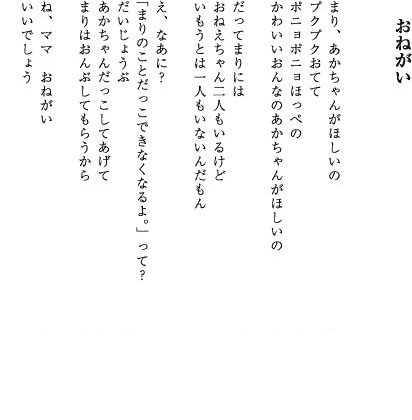 おねがい
まり、あかちゃんがほしいの
プクプクおてて
ポニョポニョほっぺの
かわいいおんなのあかちゃんがほしいの
だってまりには
おねえちゃん二人もいるけど
いもうとは一人もいないんだもん
え、なあに?
「まりのことだっこできなくなるよ。」って?
だいじょうぶ
あかちゃんだっこしてあげて
まりはおんぶしてもらうから
ね、ママ　おねがい
いいでしょう